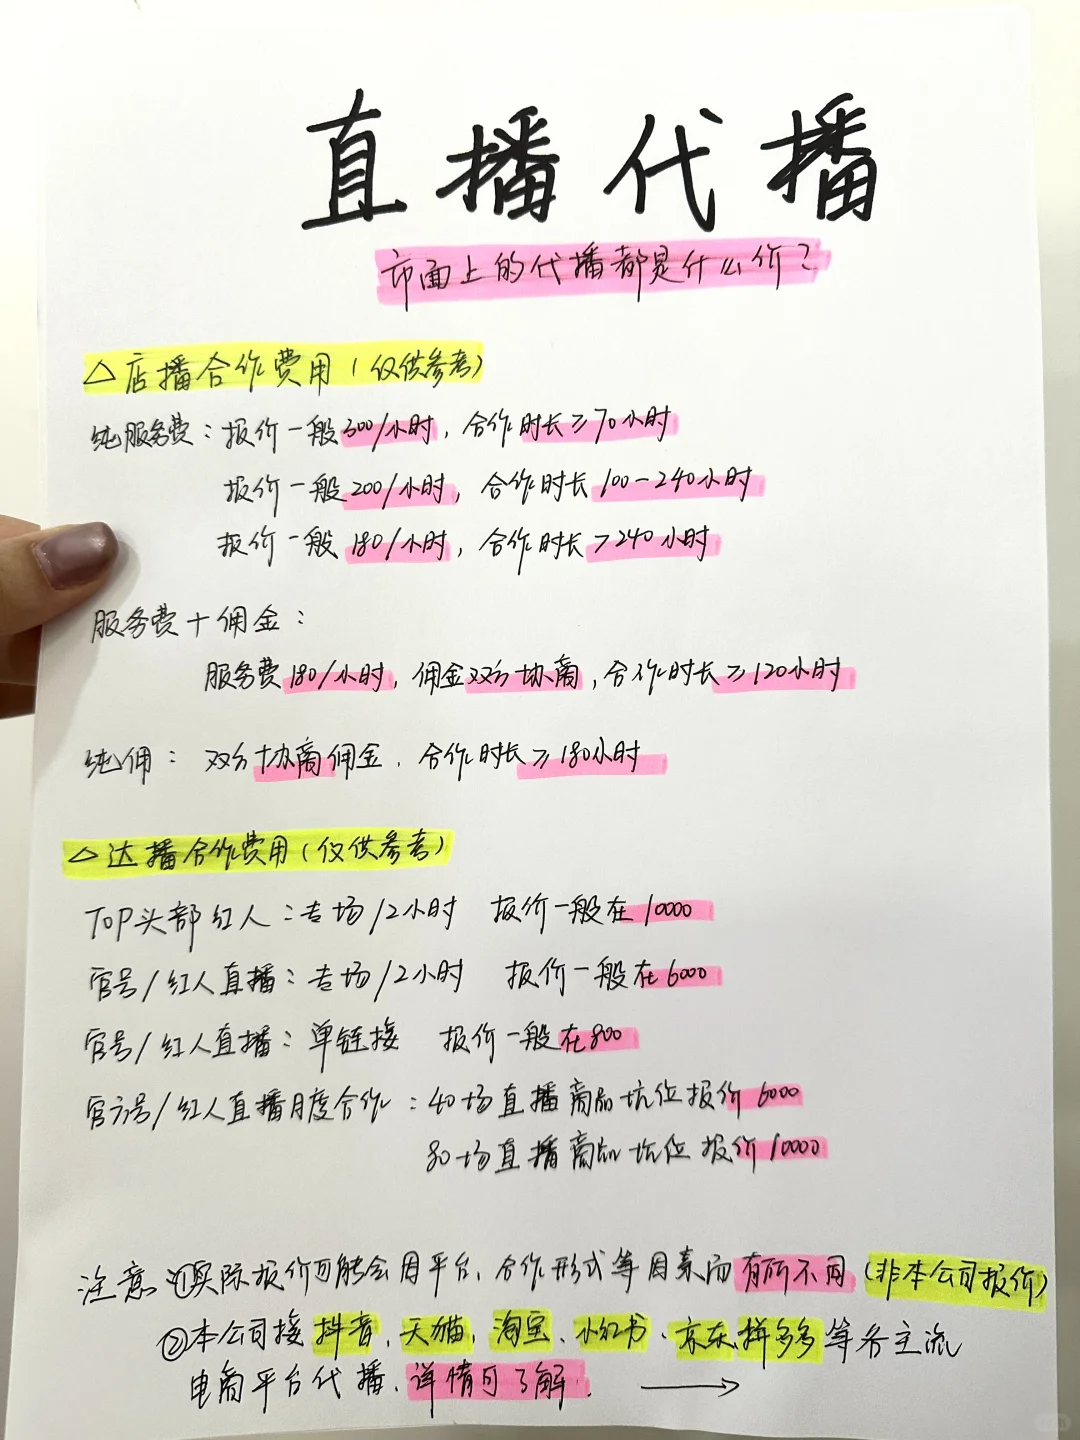 直播代播
市面上的代播都是什么价?
△店播合作费用(仅供参考)
纯服务费:报价一般300/小时,合作时长≥70小时
报价一般200/小时,合作时长100-240小时
报价一般180/小时,合作时长>240小时
服务费+佣金:
服务费180/小时,佣金双方协商,合作时长≥120小时
纯佣:双方协商佣金,合作时长≥180小时
△达播合作费用(仅供参考)
TOP头部红人:专场/2小时 报价一般在10000
官号/红人直播:专场/2小时 报价一般在6000
官号/红人直播:单链接 报价一般在800
官方号/红人直播月度合作:40场直播商品坑位报价6000
80场直播商品坑位报价10000
注意①实际报价可能会因平台、合作形式等因素而有所不同(非本公司报价)
②本公司接抖音、天猫、淘宝、小红书、京东拼多多等各主流
电商平台代播、详情可了解. →